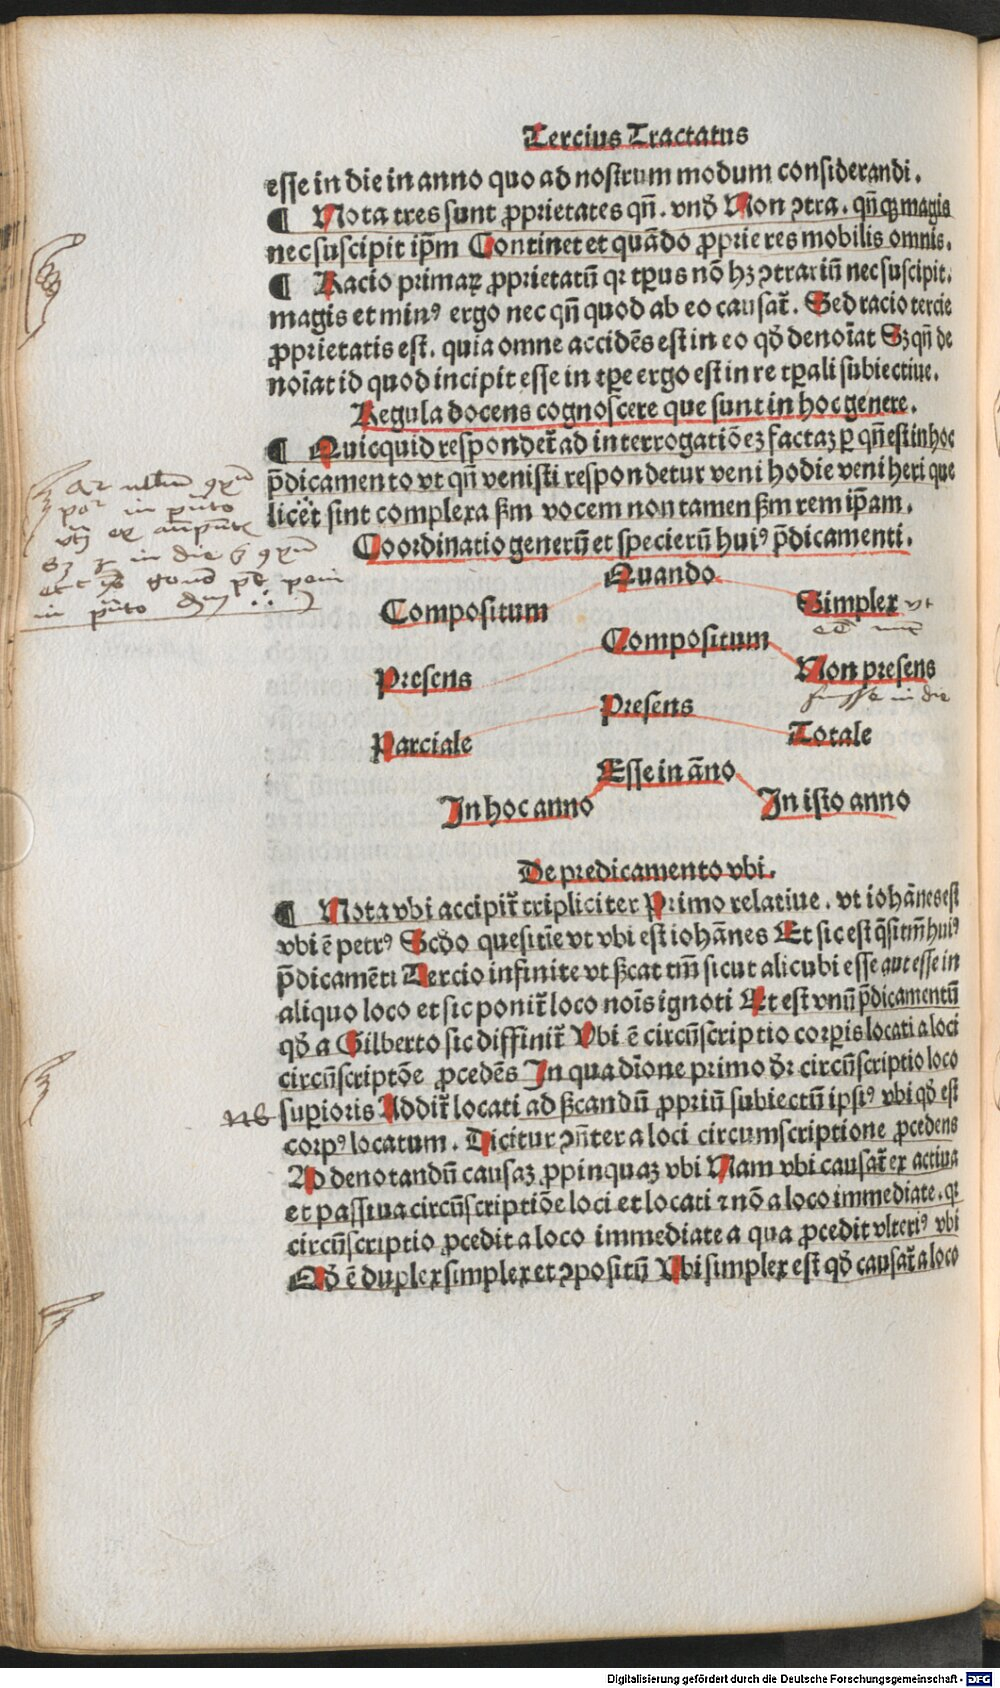 Tercius Tractatus
esse in die in anno quo ad nostrum modum considerandi.
¶ Nota tres sunt ꝓprietates qñ. vnð Non ↄtra. qñ qꝫ magis
nec suscipit ip̃m Continet et quãdo ꝓprie res mobilis omnis.
¶ Racio primaꝝ ꝓprietatũ qꝛ tꝑus nõ hꝫ ↄtrariũ nec suscipit.
magis et minꝰ ergo nec qñ quod ab eo causat̃. Sed racio tercie
ꝓprietatis est. quia omne accidẽs est in eo qð denoĩat Sꝫ qñ de
noĩat id quod incipit esse in tꝑe ergo est in re tꝑali subiectiue.
Regula docens cognoscere que sunt in hoc genere.
¶ Quicquid respondet̃ ad interrogatiõeꝫ factaꝫ ꝑ qñ est in hoc
p̃dicamento vt qñ venisti respondetur veni hodie veni heri que
licet sint complexa ẜm vocem non tamen ẜm rem ip̃am.
Coordinatio generũ et specierũ huiꝰ p̃dicamenti.
Quando
Compositum
Simplex vt
Compositum
Presens
Non presens
fuisse in die
Presens
Parciale
Totale
Esse in ãno
In hoc anno
In isto anno
De predicamento vbi.
¶ Nota vbi accipit̃ tripliciter Primo relatiue. vt iohãnes est
vbi ẽ petrꝰ Scðo quesitĩe vt vbi est iohãnes Et sic est q̃sitm̃ huiꝰ
p̃dicamẽti Tercio infinite vt ẜcat tm̃ sicut alicubi esse aut esse in
aliquo loco et sic ponit̃ loco noĩs ignoti Et est vnũ p̃dicamentũ
qð a Gilberto sic diffinit̃ Vbi ẽ circũscriptio corꝑis locati a loci
circũscriptõe ꝓcedẽs In qua dĩone primo ðr circũscriptio loco
suꝑioris Addit̃ locati ad ẜcandũ ꝓpriũ subiectũ ipsiꝰ vbi qð est
NB
corpꝰ locatum. Dicitur ↄñter a loci circumscriptione ꝓcedens
Ad denotandũ causaꝫ ꝓpinquaꝫ vbi Nam vbi causat̃ ex actiua
et passiua circũscriptiõe loci et locati ⁊ nõ a loco immediate. qꝛ
circũscriptio ꝓcedit a loco immediate a qua ꝓcedit vlteriꝰ vbi
Qð ẽ duplex simplex et ↄpositũ Vbi simplex est qð causat̃ a loco
Digitalisierung gefördert durch die Deutsche Forschungsgemeinschaft - DFG